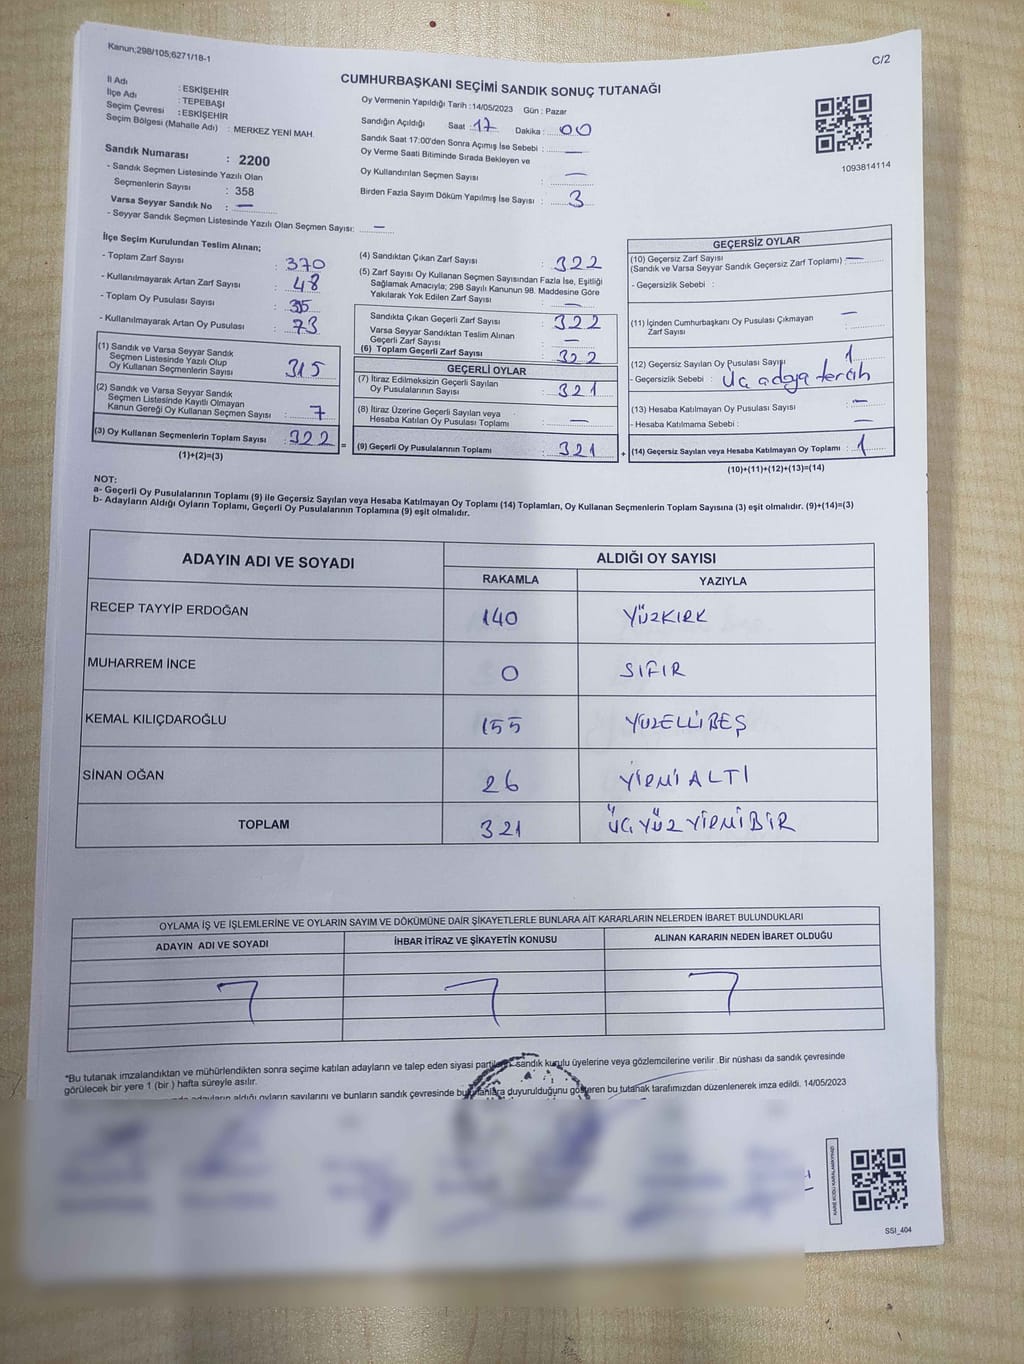 Kanun;298/105;6271/18-1
C/2
CUMHURBAŞKANI SEÇİMİ SANDIK SONUÇ TUTANAĞI
İl Adı : ESKİŞEHİR
İlçe Adı : TEPEBAŞI
Seçim Çevresi : ESKİŞEHİR
Seçim Bölgesi (Mahalle Adı) : MERKEZ YENİ MAH.
Oy Vermenin Yapıldığı Tarih :14/05/2023 Gün : Pazar
Sandığın Açıldığı Saat 17 Dakika : 00
Sandık Saat 17:00'den Sonra Açımış İse Sebebi : —
Oy Verme Saati Bitiminde Sırada Bekleyen ve
Oy Kullandırılan Seçmen Sayısı : —
Birden Fazla Sayım Döküm Yapılmış İse Sayısı : 3
1093814114
Sandık Numarası : 2200
- Sandık Seçmen Listesinde Yazılı Olan
Seçmenlerin Sayısı : 358
Varsa Seyyar Sandık No : —
- Seyyar Sandık Seçmen Listesinde Yazılı Olan Seçmen Sayısı: —
İlçe Seçim Kurulundan Teslim Alınan;
- Toplam Zarf Sayısı : 370
- Kullanılmayarak Artan Zarf Sayısı : 48
- Toplam Oy Pusulası Sayısı :
- Kullanılmayarak Artan Oy Pusulası : 73
(1) Sandık ve Varsa Seyyar Sandık
Seçmen Listesinde Yazılı Olup
Oy Kullanan Seçmenlerin Sayısı : 315
(2) Sandık ve Varsa Seyyar Sandık
Seçmen Listesinde Kayıtlı Olmayan
Kanun Gereği Oy Kullanan Seçmen Sayısı : 7
(3) Oy Kullanan Seçmenlerin Toplam Sayısı : 322 =
(1)+(2)=(3)
(4) Sandıktan Çıkan Zarf Sayısı : 322
(5) Zarf Sayısı Oy Kullanan Seçmen Sayısından Fazla İse, Eşitliği
Sağlamak Amacıyla; 298 Sayılı Kanunun 98. Maddesine Göre
Yakılarak Yok Edilen Zarf Sayısı : —
Sandıkta Çıkan Geçerli Zarf Sayısı : 322
Varsa Seyyar Sandıktan Teslim Alınan
Geçerli Zarf Sayısı : —
(6) Toplam Geçerli Zarf Sayısı : 322
GEÇERLİ OYLAR
(7) İtiraz Edilmeksizin Geçerli Sayılan
Oy Pusulalarının Sayısı : 321
(8) İtiraz Üzerine Geçerli Sayılan veya
Hesaba Katılan Oy Pusulaları Toplamı : —
(9) Geçerli Oy Pusulalarının Toplamı : 321 +
GEÇERSİZ OYLAR
(10) Geçersiz Zarf Sayısı
(Sandık ve Varsa Seyyar Sandık Geçersiz Zarf Toplamı) : —
- Geçersizlik Sebebi :
(11) İçinden Cumhurbaşkanı Oy Pusulası Çıkmayan
Zarf Sayısı : —
(12) Geçersiz Sayılan Oy Pusulası Sayısı : 1
- Geçersizlik Sebebi : Üç adaya tercih
(13) Hesaba Katılmayan Oy Pusulası Sayısı : —
- Hesaba Katılmama Sebebi : —
(14) Geçersiz Sayılan veya Hesaba Katılmayan Oy Toplamı : 1
(10)+(11)+(12)+(13)=(14)
NOT:
a- Geçerli Oy Pusulalarının Toplamı (9) ile Geçersiz Sayılan veya Hesaba Katılmayan Oy Toplamı (14) Toplamları, Oy Kullanan Seçmenlerin Toplam Sayısına (3) eşit olmalıdır. (9)+(14)=(3)
b- Adayların Aldığı Oyların Toplamı, Geçerli Oy Pusulalarının Toplamına (9) eşit olmalıdır.
ADAYIN ADI VE SOYADI ALDIĞI OY SAYISI
RAKAMLA YAZIYLA
RECEP TAYYİP ERDOĞAN 140 YÜZKIRK
MUHARREM İNCE 0 SIFIR
KEMAL KILIÇDAROĞLU 155 YÜZELLİBEŞ
SİNAN OĞAN 26 YİRMİALTI
TOPLAM 321 ÜÇYÜZYİRMİBİR
OYLAMA İŞ VE İŞLEMLERİNE VE OYLARIN SAYIM VE DÖKÜMÜNE DAİR ŞİKAYETLERLE BUNLARA AİT KARARLARIN NELERDEN İBARET BULUNDUKLARI
ADAYIN ADI VE SOYADI İHBAR İTİRAZ VE ŞİKAYETİN KONUSU ALINAN KARARIN NEDEN İBARET OLDUĞU
*Bu tutanak imzalandıktan ve mühürlendikten sonra seçime katılan adayların ve talep eden siyasi partilerin sandık kurulu üyelerine veya gözlemcilerine verilir .Bir nüshası da sandık çevresinde
görülecek bir yere 1 (bir ) hafta süreyle asılır.
adayların aldığı oyların sayılarını ve bunların sandık çevresinde bulunanlara duyurulduğunu gösteren bu tutanak tarafımızdan düzenlenerek imza edildi. 14/05/2023
KARE KODU KARALAMAYINIZ!
SSI_404